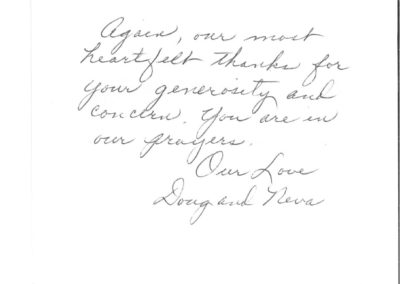 Again, our most
heartfelt thanks for
your generosity and
concern. You are in
our prayers.
Our Love
Doug and Neva